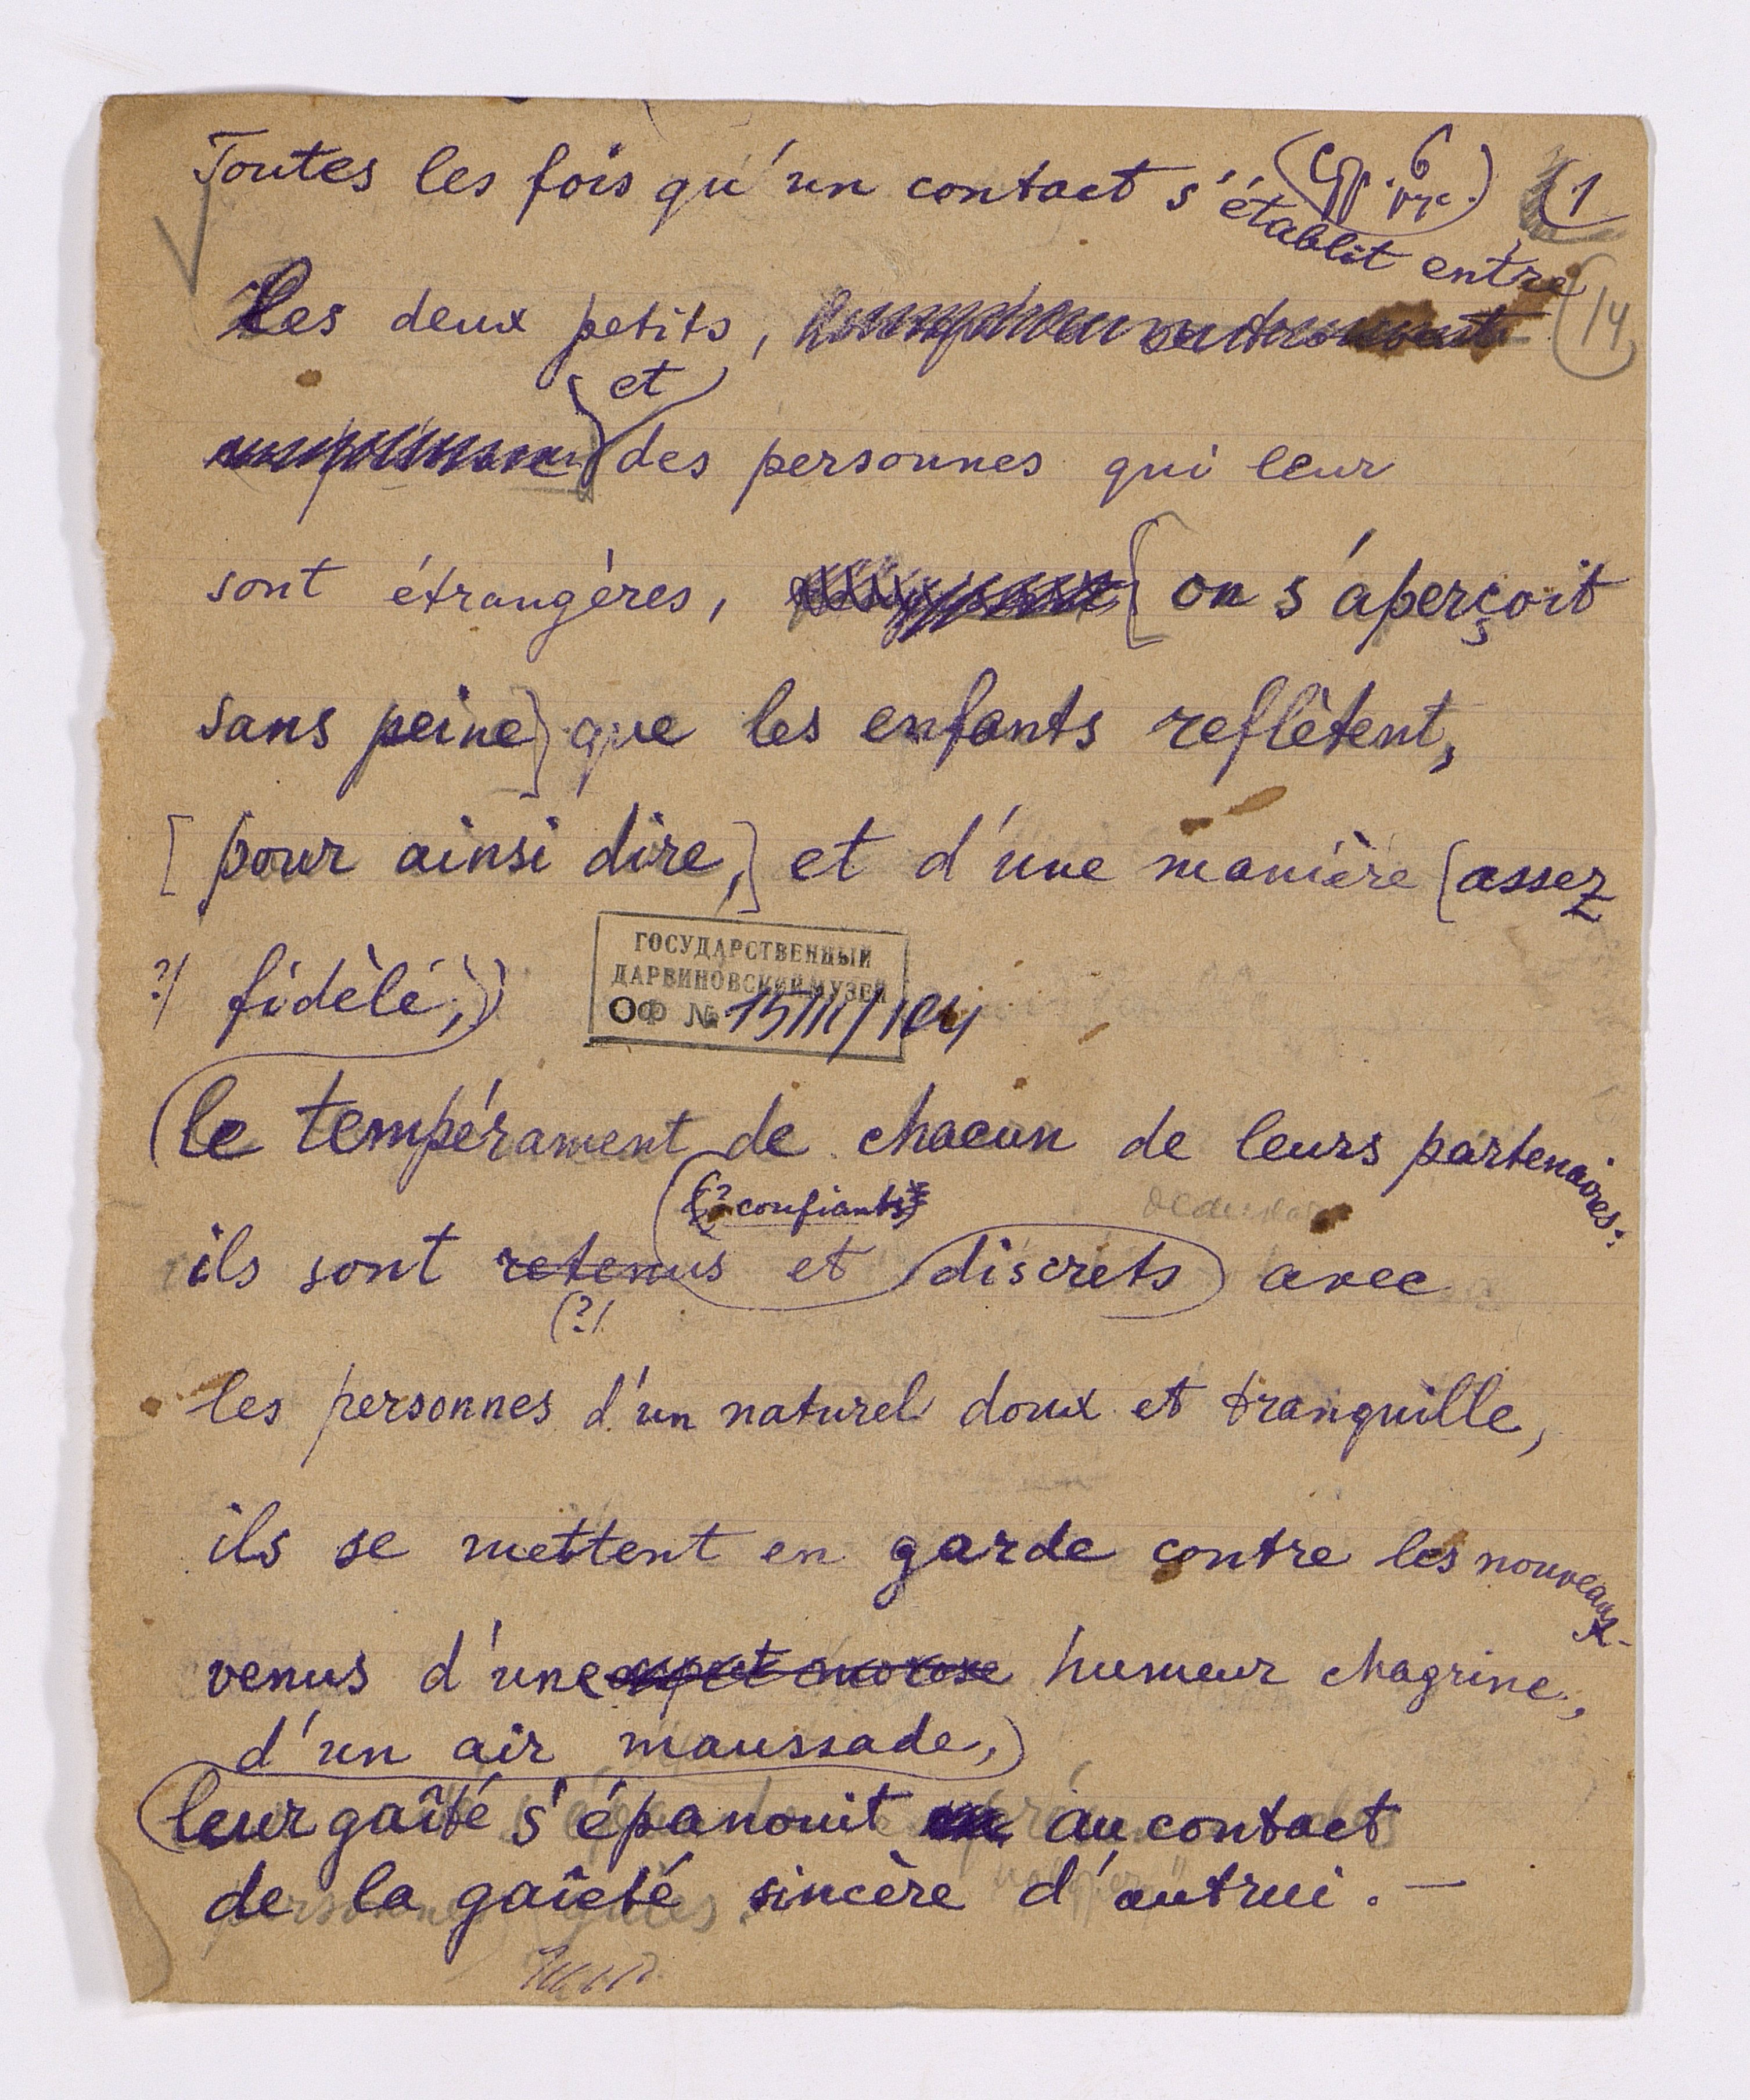 Toutes les fois qu'un contact s'établit entre (1
14
les deux petits,
et
des personnes qui leur
sont étrangères, [on s'aperçoit
sans peine] que les enfants reflètent,
[pour ainsi dire,] et d'une manière (assez
?) fidèle,)
ГОСУДАРСТВЕННЫЙ
ДАРВИНОВСКИЙ МУЗЕЙ
ОФ №
(le tempérament de chacun de leurs partenaires:
(? confiants)
ils sont retenus et (discrets) avec
(?)
les personnes d'un naturel doux et tranquille,
ils se mettent en garde contre les nouveaux-
venus d'une aspect morose humeur chagrine,
d'un air maussade,)
(leur gaîté s'épanouit au contact
de la gaieté sincère d'autrui. —